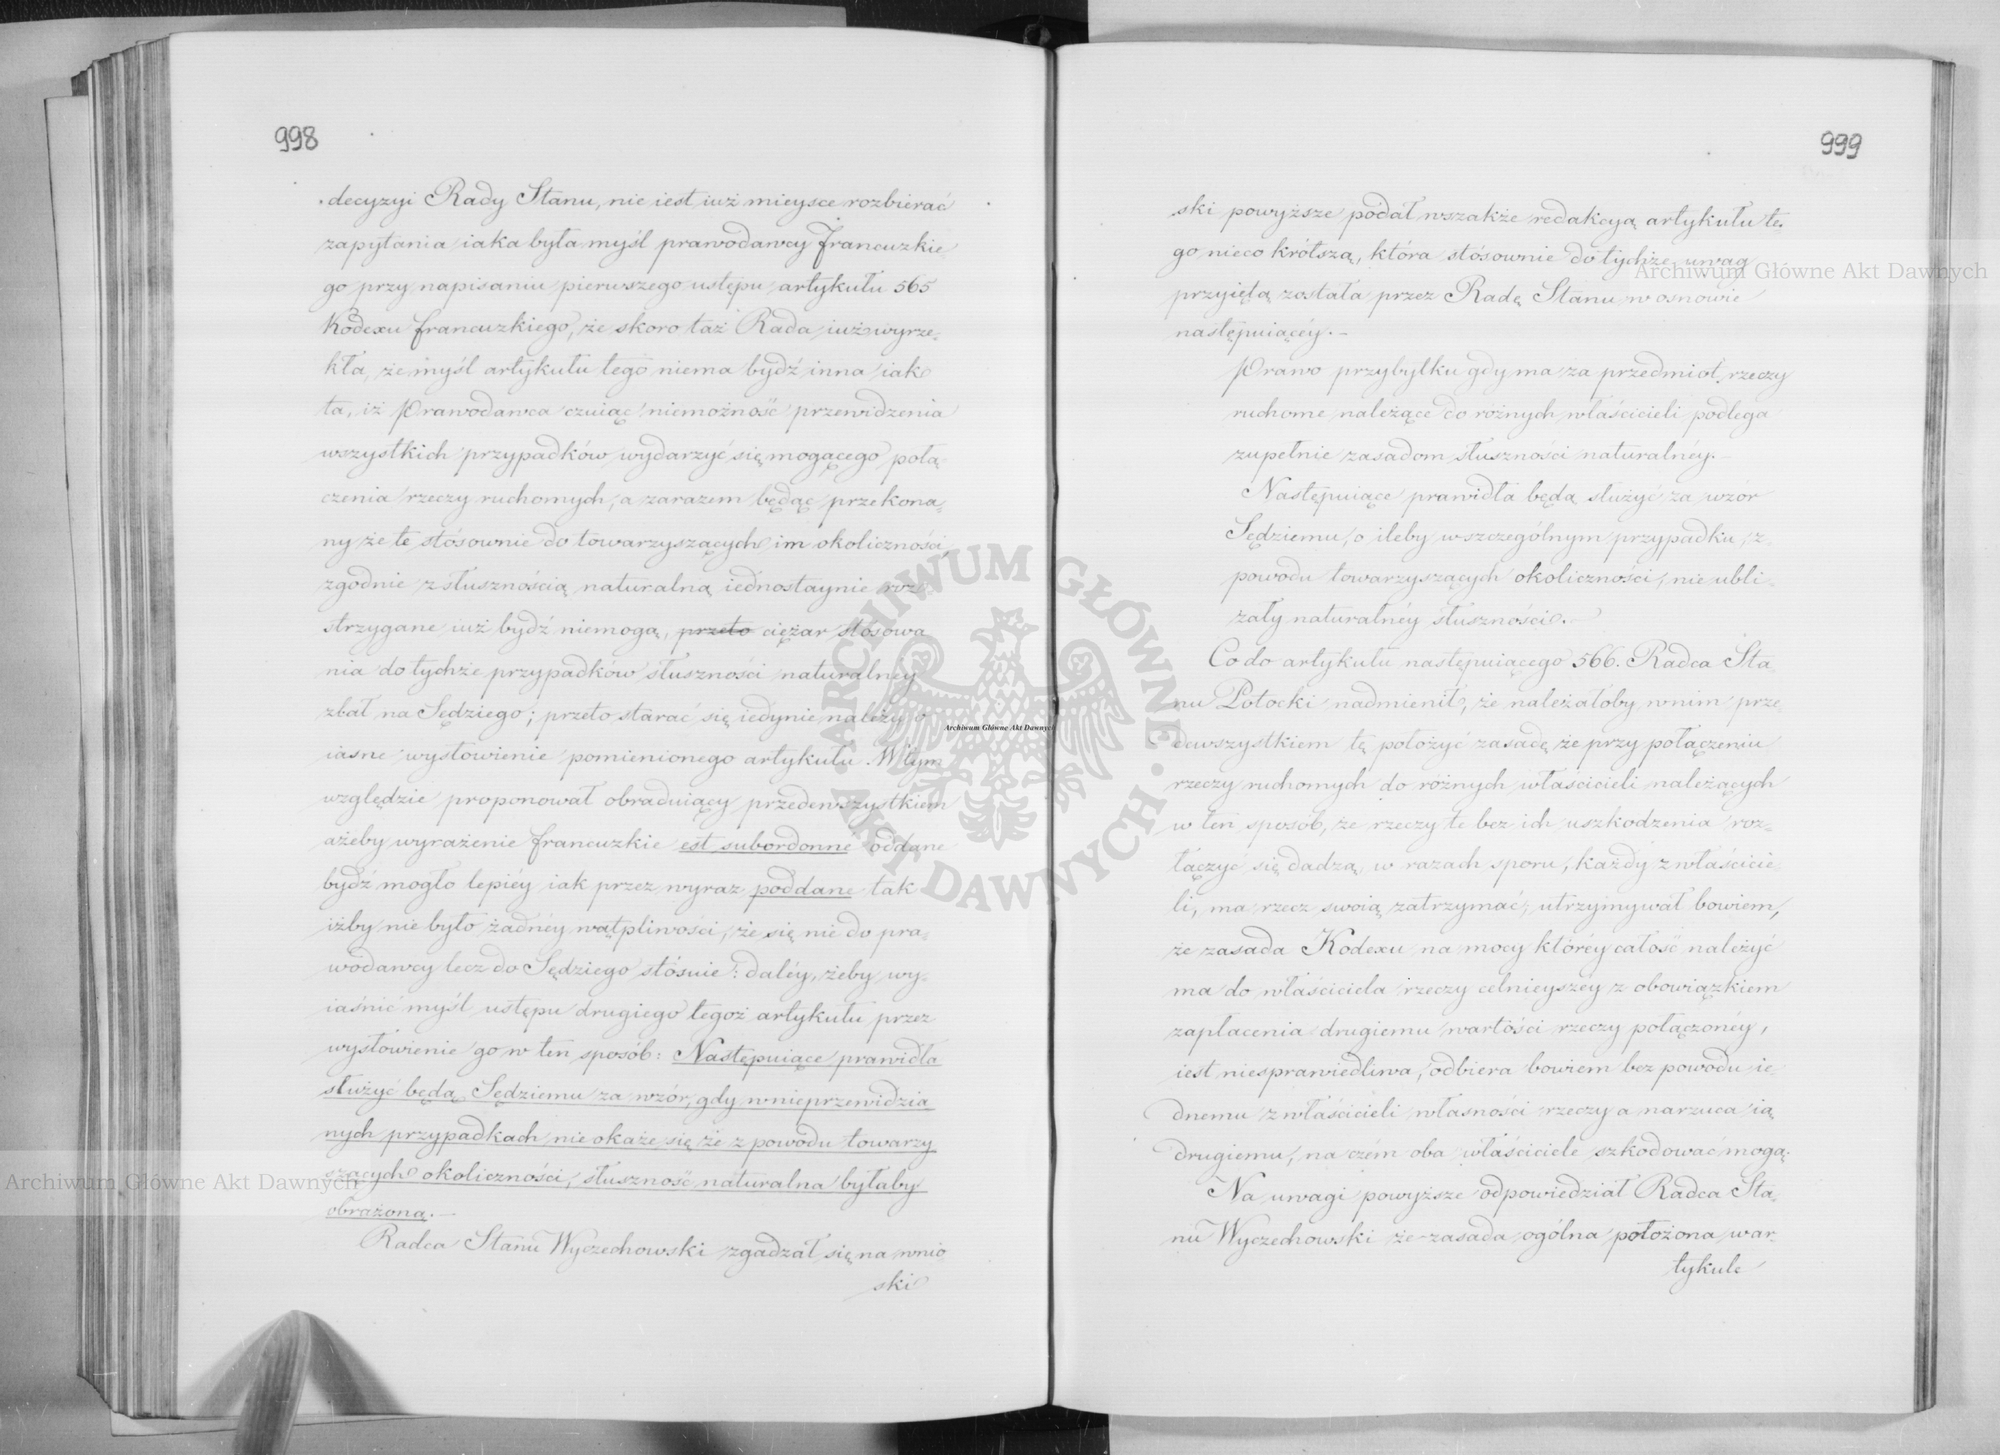 998
decyzyi Rady Stanu, nie iest iuż mieysce rozbierać
zapytania iaka była myśl prawodawcy francuzkie-
go przy napisaniu pierwszego ustępu artykułu 565
Kodexu francuzkiego, że skoro taż Rada iuż wyrze-
kła, że myśl artykułu tego niema bydź inna iak
ta, iż Prawodawca czuiąc niemożność przewidzenia
wszystkich przypadków wydarzyć się mogącego połą-
czenia rzeczy ruchomych, a zarazem będąc przekona-
ny że te stósownie do towarzyszących im okoliczności,
zgodnie z słusznością naturalną iednostaynie roz-
strzygane iuż bydź niemogą, przeto ciężar stósowa
nia do tychże przypadków słuszności naturalnéy
zbał na Sędziego; przeto starać się iedynie należy o
iasne wysłowienie pomienionego artykułu. W tym
względzie proponował obraduiący przedewszystkiem
ażeby wyrażenie francuzkie est subordonné oddane
bydź mogło lepiéy iak przez wyraz poddane tak
iżby nie było żadnéy wątpliwości, że się nie do pra-
wodawcy lecz do Sędziego stósuie: daléy, żeby wy-
iaśnić myśl ustępu drugiego tegoż artykułu przez
wysłowienie go w ten sposób: Następuiące prawidła
służyć będą Sędziemu za wzór, gdy w nieprzewidzia
nych przypadkach, nie okaże się, że z powodu towarzy
szących okoliczności, słuszność naturalna byłaby
obrażoną.—
Radca Stanu Wyczechowski zgadzał się na wnio-
ski
999
ski powyższe podał wszakże redakcyą artykułu te-
go nieco krótszą, która stósownie do tychże uwag
przyiętą została przez Radę Stanu w osnowie
następuiącéy.—
Prawo przybytku gdy ma za przedmiot rzeczy
ruchome należące do różnych właścicieli podlega
zupełnie zasadom słuszności naturalnéy.—
Następuiące prawidła będą służyć za wzor
Sędziemu, o ileby w szczególnym przypadku, z
powodu towarzyszących okoliczności, nie ubli-
żały naturalnéy słuszności.—
Co do artykułu następuiącego 566. Radca Sta-
nu Potocki nadmienił, że należałoby w nim prze-
dewszystkiem tę położyć zasadę że przy połączeniu
rzeczy ruchomych do różnych właścicieli należących
w ten sposób, że rzeczy te bez ich uszkodzenia roz-
łączyć się dadzą, w razach sporu, każdy z właścicie-
li, ma rzecz swoią zatrzymać, utrzymywał bowiem,
że zasada Kodexu na mocy któréy całość należyć
ma do właściciela rzeczy celnieyszey z obowiązkiem
zapłacenia drugiemu wartości rzeczy połączonéy,
iest niesprawiedliwa, odbiera bowiem bez powodu ie-
dnemu z właścicieli własności rzeczy a narzuca ią
drugiemu, na czém oba właściciele szkodować mogą.
Na uwagi powyższe odpowiedział Radca Sta-
nu Wyczechowski że zasada ogólna położona w ar-
tykule
Archiwum Główne Akt Dawnych
Archiwum Główne Akt Dawnych
Archiwum Główne Akt Dawnych
ARCHIWUM GŁÓWNE
AKT DAWNYCH